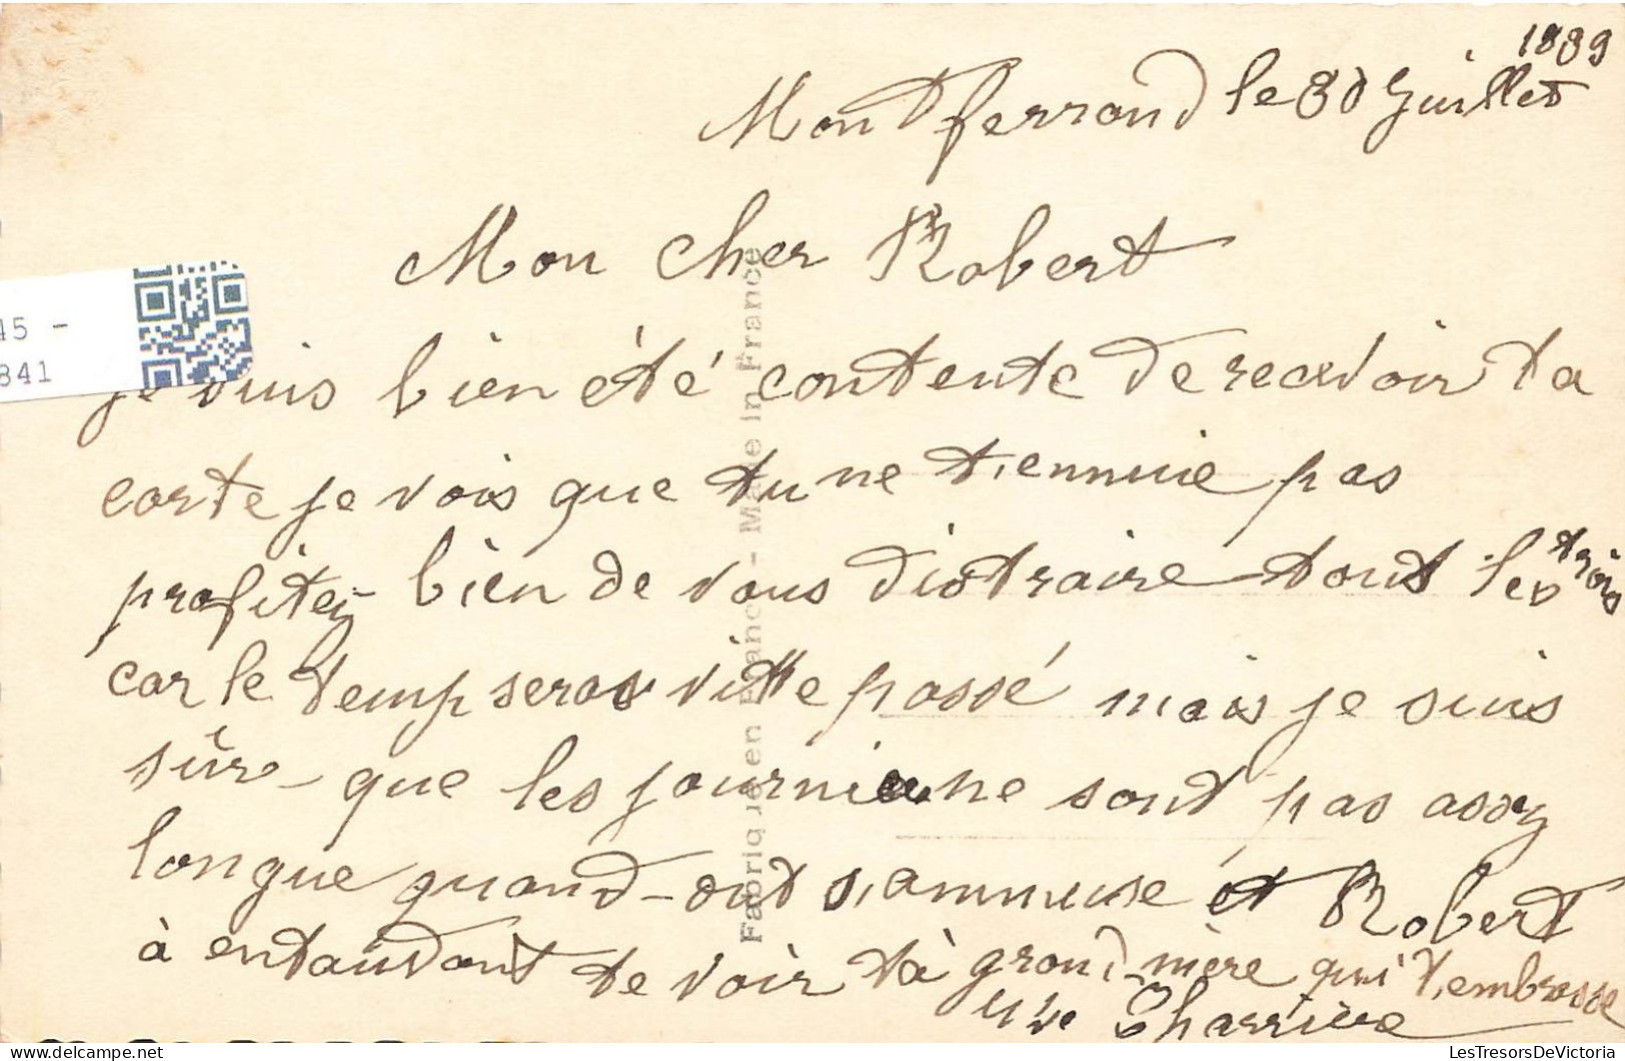 1889
Montferrand le 30 Juillet
Mon cher Robert
je suis bien été contente de recevoir ta
carte je vois que tu ne t'ennuie pas
profitez bien de vous distraire tout les trois
car le temp seras vitte passé mais je suis
sûr que les journie ne sont pas assez
longue quand ont s'ammuse et Robert
à entandant te voir tà grand-mère qui t'embrasse
Vve Charrière
Fabriqué en France - Made in France
45 -
841
LesTresorsDeVictoria
delcampe.net